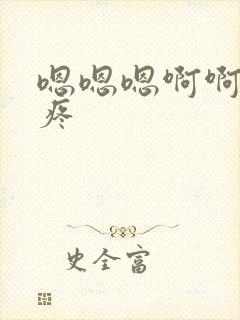 嗯嗯嗯啊啊
疼
史全富